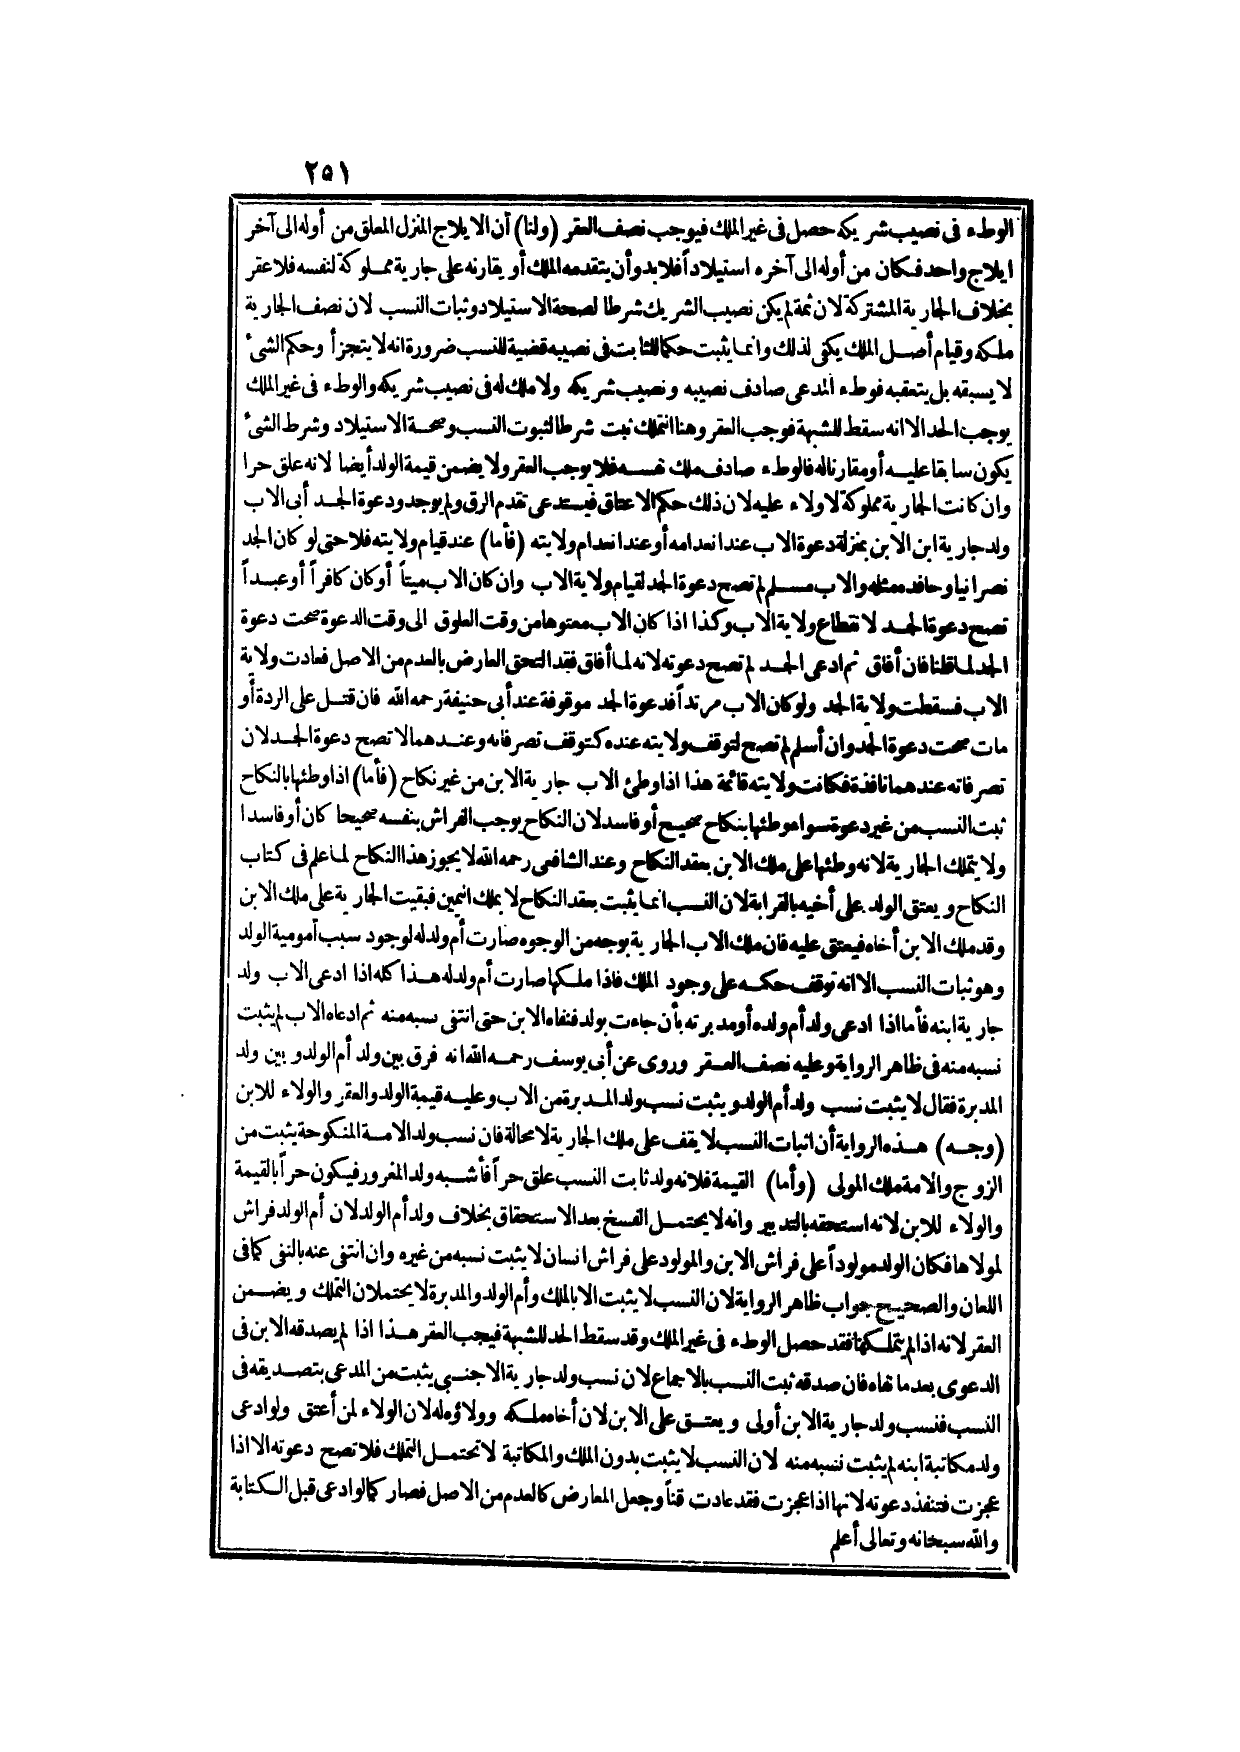 ٢٥١
الوطء فى نصيب شريكه حصل فى غير الملك فيوجب نصف العقر (ولنا) أن الايلاج المنزل المعلق من أوله الى آخر
ايلاج واحد فكان من أوله الى آخره استيلاداً فلا بد وأن يتقدمه الملك أو يقارنه على جارية مملوكة لنفسه فلا عقر
بخلاف الجارية المشتركة لان ثمة لم يكن نصيب الشريك شرطا لصحة الاستيلاد وثبات النسب لان نصف الجارية
ملكه وقيام أصل الملك يكفى لذلك وانما يثبت حكما للثابت فى نصيبه قضية للنسب ضرورة انه لا يتجزأ وحكم الشئ
لا يسبقه بل يتعقبه فوطء المدعى صادف نصيبه ونصيب شريكه ولا ملك له فى نصيب شريكه والوطء فى غير الملك
يوجب الحد الا انه سقط للشبهة فوجب العقر وهنا التملك ثبت شرطا لثبوت النسب وصحة الاستيلاد وشرط الشئ
يكون سابقا عليه أو مقارنا له فالوطء صادف ملك نفسه فلا يوجب العقر ولا يضمن قيمة الولد أيضا لانه علق حرا
وان كانت الجارية مملوكة لا ولاء عليه لان ذلك حكم الاعتاق فيستدعى تقدم الرق ولم يوجد ودعوة الجد أبى الاب
ولد جارية ابن الابن بمنزلة دعوة الاب عند انعدامه أو عند انعدام ولايته (فأما) عند قيام ولايته فلا حتى لو كان الجد
نصرانيا وحافده مثله والاب مسلم لم تصح دعوة الجد لقيام ولاية الاب وان كان الاب ميتاً أو كان كافراً أو عبداً
تصح دعوة الجد لانقطاع ولاية الاب وكذا اذا كان الاب معتوها من وقت العلوق الى وقت الدعوة صحت دعوة
الجد لما قلنا فان أفاق ثم ادعى الجد لم تصح دعوته لانه لما أفاق فقد التحق العارض بالعدم من الاصل فعادت ولاية
الاب فسقطت ولاية الجد ولو كان الاب مرتداً فدعوة الجد موقوفة عند أبى حنيفة رحمه الله فان قتل على الردة أو
مات صحت دعوة الجد وان أسلم لم تصح لتوقف ولايته عنده كتوقف تصرفاته وعندهما لا تصح دعوة الجد لان
تصرفاته عندهما نافذة فكانت ولايته قائمة هذا اذا وطئ الاب جارية الابن من غير نكاح (فأما) اذا وطئها بالنكاح
ثبت النسب من غير دعوة سواء وطئها بنكاح صحيح أو فاسد لان النكاح يوجب الفراش بنفسه صحيحا كان أو فاسدا
ولا يتملك الجارية لانه وطئها على ملك الابن بعقد النكاح وعند الشافعى رحمه الله لا يجوز هذا النكاح لما علم فى كتاب
النكاح ويعتق الولد على أخيه بالقرابة لان النسب انما يثبت بعقد النكاح لا بملك اليمين فبقيت الجارية على ملك الابن
وقد ملك الابن أخاه فيعتق عليه فان ملك الاب الجارية بوجه من الوجوه صارت أم ولد له لوجود سبب أمومية الولد
وهو ثبات النسب الا انه توقف حكمه على وجود الملك فاذا ملكها صارت أم ولد له هذا كله اذا ادعى الاب ولد
جارية ابنه فأما اذا ادعى ولد أم ولده أو مدبرته بأن جاءت بولد فنفاه الابن حتى انتفى نسبه منه ثم ادعاه الاب لم يثبت
نسبه منه فى ظاهر الرواية وعليه نصف العقر وروى عن أبى يوسف رحمه الله انه فرق بين ولد أم الولد وبين ولد
المدبرة فقال لا يثبت نسب ولد أم الولد ويثبت نسب ولد المدبرة من الاب وعليه قيمة الولد والعقر والولاء للابن
(وجه) هذه الرواية أن اثبات النسب لا يقف على ملك الجارية لا محالة فان نسب ولد الامة المنكوحة يثبت من
الزوج والامة ملك المولى (وأما) القيمة فلانه ولد ثابت النسب علق حراً فأشبه ولد المغرور فيكون حراً بالقيمة
والولاء للابن لانه استحقه بالتدبير وانه لا يحتمل الفسخ بعد الاستحقاق بخلاف ولد أم الولد لان أم الولد فراش
لمولاها فكان الولد مولوداً على فراش الابن والمولود على فراش انسان لا يثبت نسبه من غيره وان انتفى عنه بالنفى كما فى
اللعان والصحيح جواب ظاهر الرواية لان النسب لا يثبت الا بالملك وأم الولد والمدبرة لا يحتملان التملك ويضمن
العقر لانه اذا لم يتملكها فقد حصل الوطء فى غير الملك وقد سقط الحد للشبهة فيجب العقر هذا اذا لم يصدقه الابن فى
الدعوى بعد ما نفاه فان صدقه ثبت النسب بالاجماع لان نسب ولد جارية الاجنبى يثبت من المدعى بتصديقه فى
النسب فنسب ولد جارية الابن أولى ويعتق على الابن لان أخاه ملكه وولاؤه له لان الولاء لمن أعتق ولو ادعى
ولد مكاتبة ابنه لم يثبت نسبه منه لان النسب لا يثبت بدون الملك والمكاتبة لا تحتمل التملك فلا تصح دعوته الا اذا
عجزت فتنفذ دعوته لانها اذا عجزت فقد عادت قناً وجعل المعارض كالعدم من الاصل فصار كما لو ادعى قبل الكتابة
والله سبحانه وتعالى أعلم